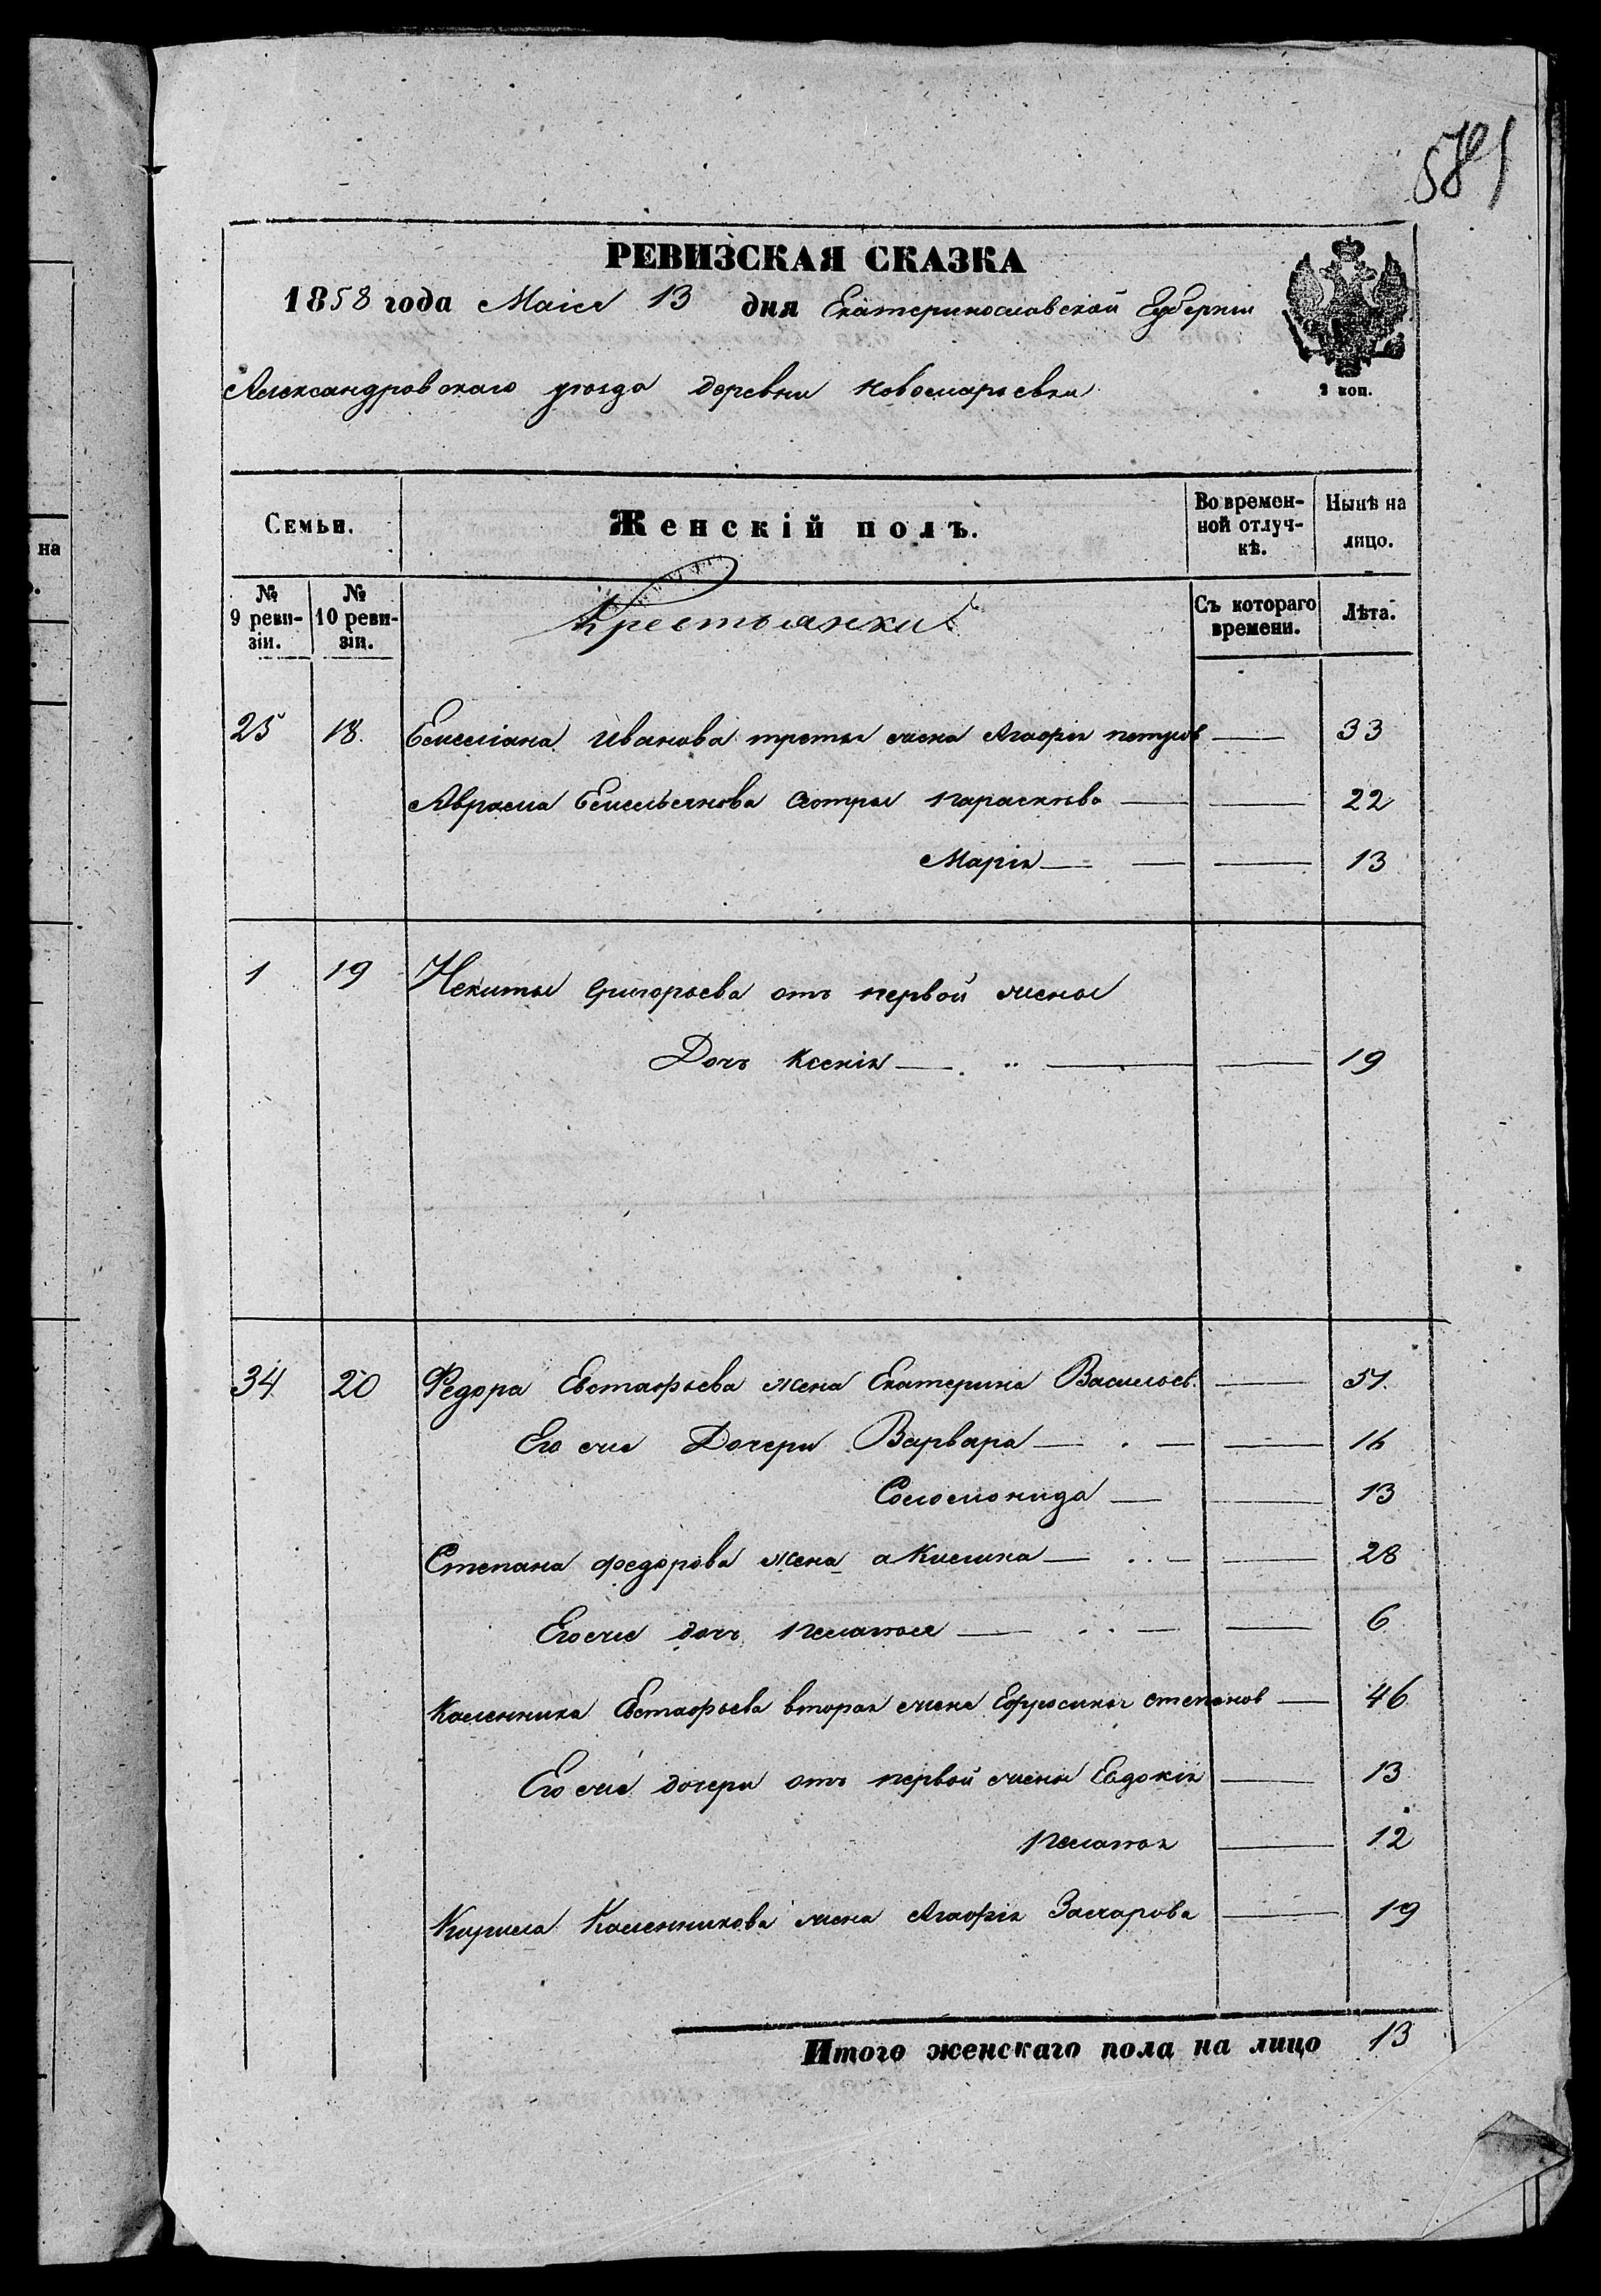 581
РЕВИЗСКАЯ СКАЗКА
1858 года Маія 13 дня Екатеринославской Губерніи
2 коп.
Александровскаго уѣзда деревни Новомарьевки
Семьи. Женскій полъ. Во времен-ной отлуч-кѣ. Нынѣ на лицо.
на
№ 9 реви-зіи. № 10 реви-зіи. Крестьянки Съ котораго времени. Лѣта.
25 18. Емеліана Иванова третья жена Агафія петров 33
Аврама Емельянова Сестры параскѣва 22
Марія 13
1 19 Некиты Григорьева отъ первой жены
Дочъ Ксенія 19
34 20 Федора Евстафьева жена Екатерина Васильев. 51.
Его же Дочери Варвара 16
Соломонида 13
Степана федорова жена акилина 28
Его же дочъ пелагея 6
Каленника Евстафьева вторая жена Ефросинья степанов 46
Его же дочери отъ первой жены Евдокія 13
пелагея 12
Кирила Каленникова жена Агафія Захарова 19
Итого женскаго пола на лицо 13